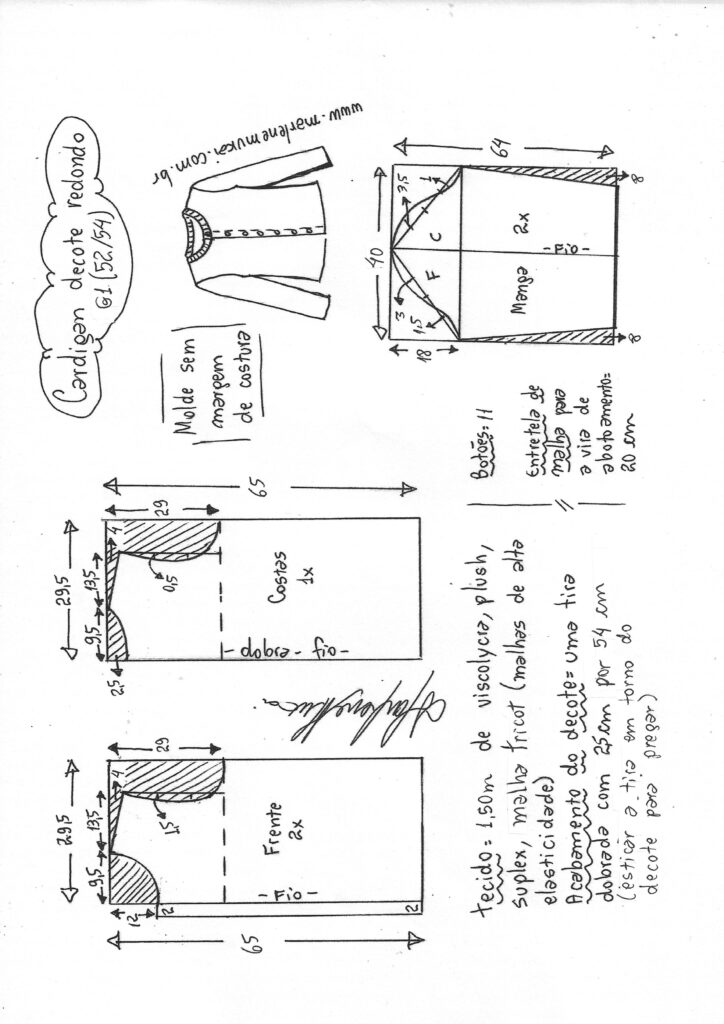 Cardigan decote redondo
G1 (52/54)
www.marlenemukai.com.br
Molde sem
margem
de costura
40
64
3,5
1
C
F
3
1,5
18
Manga
2x
-Fio-
8
8
65
29
29,5
13,5
9,5
4
2,5
0,5
Costas
1x
dobra - fio-
29
29,5
13,5
9,5
4
1,5
12
2
2
65
Frente
2x
-Fio-
Botões: 11
Entretela de
malha para
a vira de
abotoamento=
20 cm
tecido= 1,50m de viscolycra, plush,
suplex, malha tricot (malhas de alta
elasticidade)
Acabamento do decote= uma tira
dobrada com 2,5cm por 54 cm
(esticar a tira em torno do
decote para pregar)